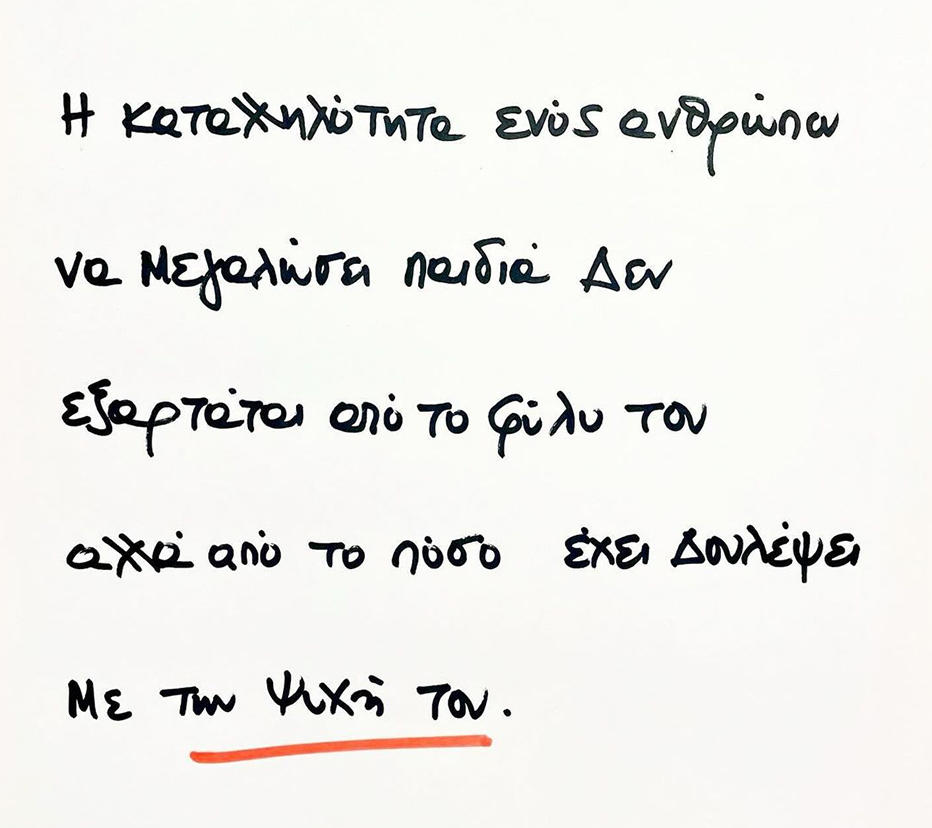 Η καταλληλότητα ενός ανθρώπου
να Μεγαλώσει παιδιά Δεν
εξαρτάται από το φύλο του
αλλά από το πόσο έχει Δουλέψει
Με την Ψυχή του.